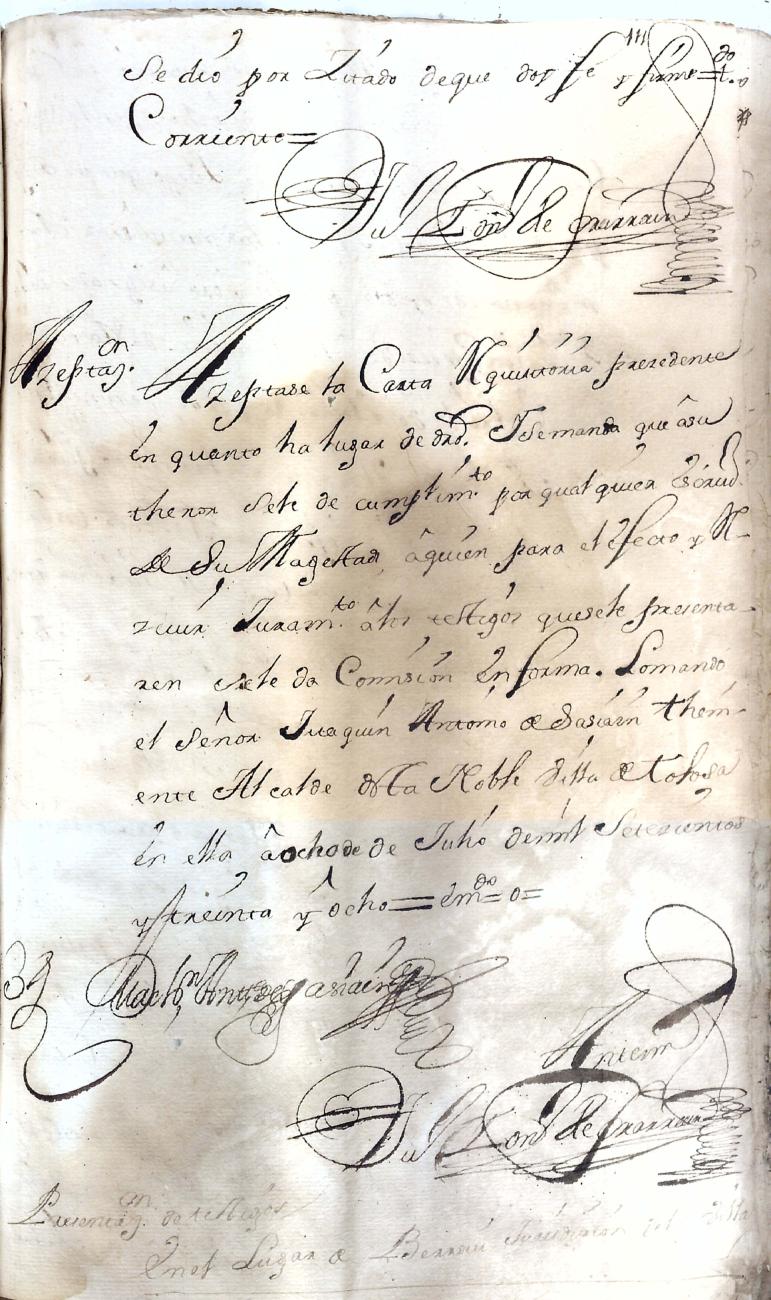 Se dió por Zitado de que doy fe y firme = t.do
Corriente =
Azeptaz.on
Azeptase la Carta Rquisitoria prezedente
en quanto ha lugar de dro. I se manda que â su
thenor sele de cumplim.to por qualquier Escriu.o
de Su Magestad, â quien para el efecto y R-
zeuir Juram.to â los testigos que sele presenta-
ren sele da Comision en forma. Lo mando
el Señor Juaquin Antonio de Sasiain theni-
ente Alcalde desta Noble Villa de Tolosa
en ella â ocho de de Julio de mil Setezientos
y treinta y ocho = em.do = o =
Ant.o de Sasiain
Antemi
Presentaz.on de testigos
En el Lugar de Berroui Jurisdizion de la Villa